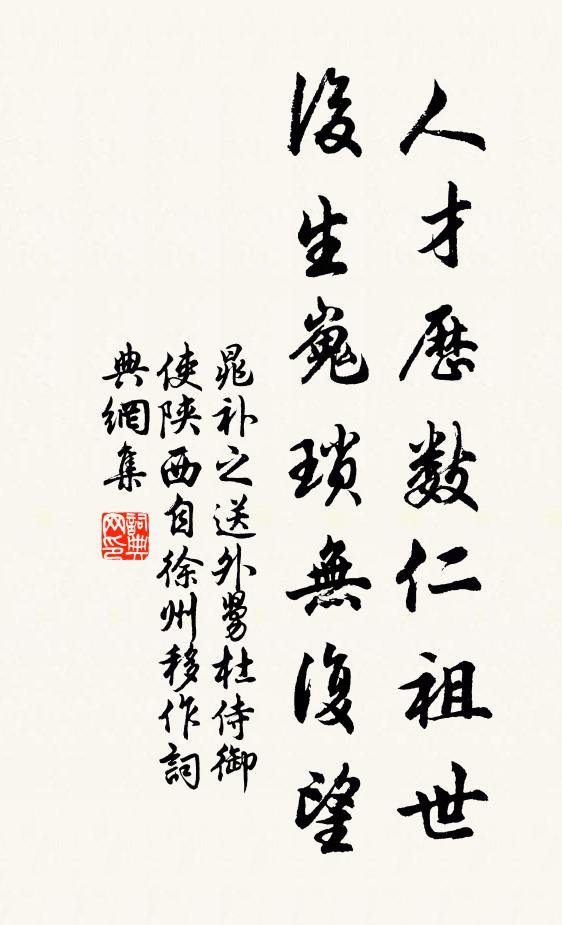 人才歷數仁祖世
後生嵬瑣無復望
晁補之送外舅杜侍御
使陝西自徐州移作詞
典網集
詞典
网印